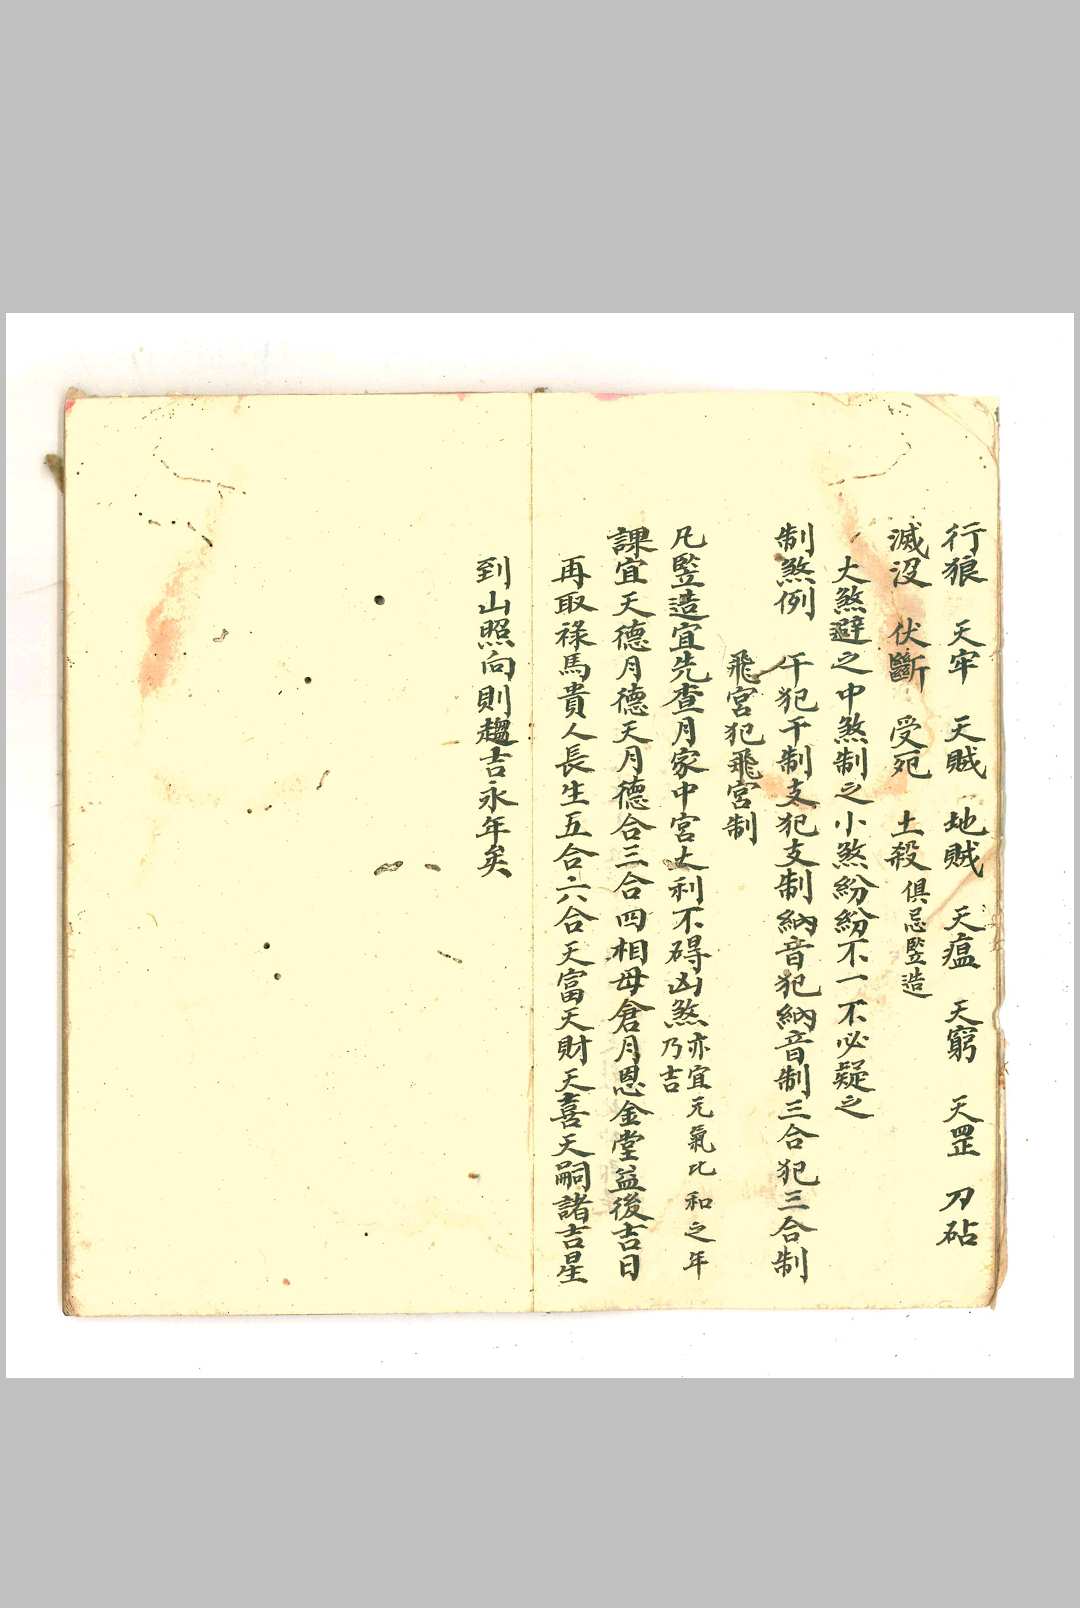 行狼　天牢　天賊　地賊　天瘟　天窮　天罡　刀砧
滅没　伏斷　受死　土殺　俱忌竪造
大煞避之中煞制之小煞紛紛不一不必疑之
制煞例　干犯干制支犯支制納音犯納音制三合犯三合制
飛宮犯飛宮制
凡竪造宜先查月家中宮大利不碍凶煞乃吉亦宜元氣比和之年
課宜天德月德天月德合三合四相母倉月恩金堂益後吉日
再取祿馬貴人長生五合六合天富天財天喜天嗣諸吉星
到山照向則趨吉永年矣